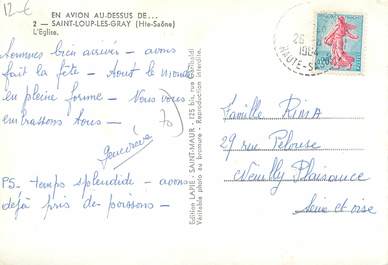 12-€
EN AVION AU-DESSUS DE...
2 - SAINT-LOUP-LES-GRAY (Hte-Saône)
L'Eglise.
sommes bien arrivés - avons
fait la fête - tout le monde
en pleine forme - Nous vous
embrassons tous -
Geneviève
PS - temps splendide - avons
déjà pris des poissons -
70
Edition LAPIE - SAINT-MAUR - 125 bis, rue Garibaldi
Véritable photo au bromure - Reproduction interdite.
26
HAUTE-SAONE
Famille RIMA
29 rue Pelouse
Neuilly Plaisance
Seine et oise